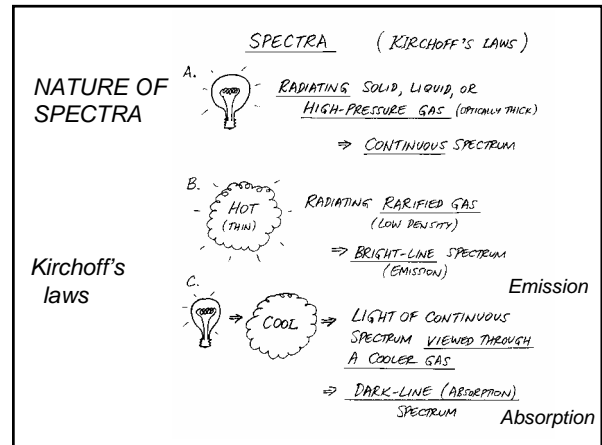 SPECTRA (KIRCHOFF'S LAWS)
NATURE OF
SPECTRA
A.
RADIATING SOLID, LIQUID, OR
HIGH-PRESSURE GAS (OPTICALLY THICK)
⇒ CONTINUOUS SPECTRUM
B.
HOT
(THIN)
RADIATING RARIFIED GAS
(LOW DENSITY)
⇒ BRIGHT-LINE SPECTRUM
(EMISSION)
Emission
Kirchoff's
laws
C.
⇒ COOL ⇒ LIGHT OF CONTINUOUS
SPECTRUM VIEWED THROUGH
A COOLER GAS
⇒ DARK-LINE (ABSORPTION)
SPECTRUM
Absorption